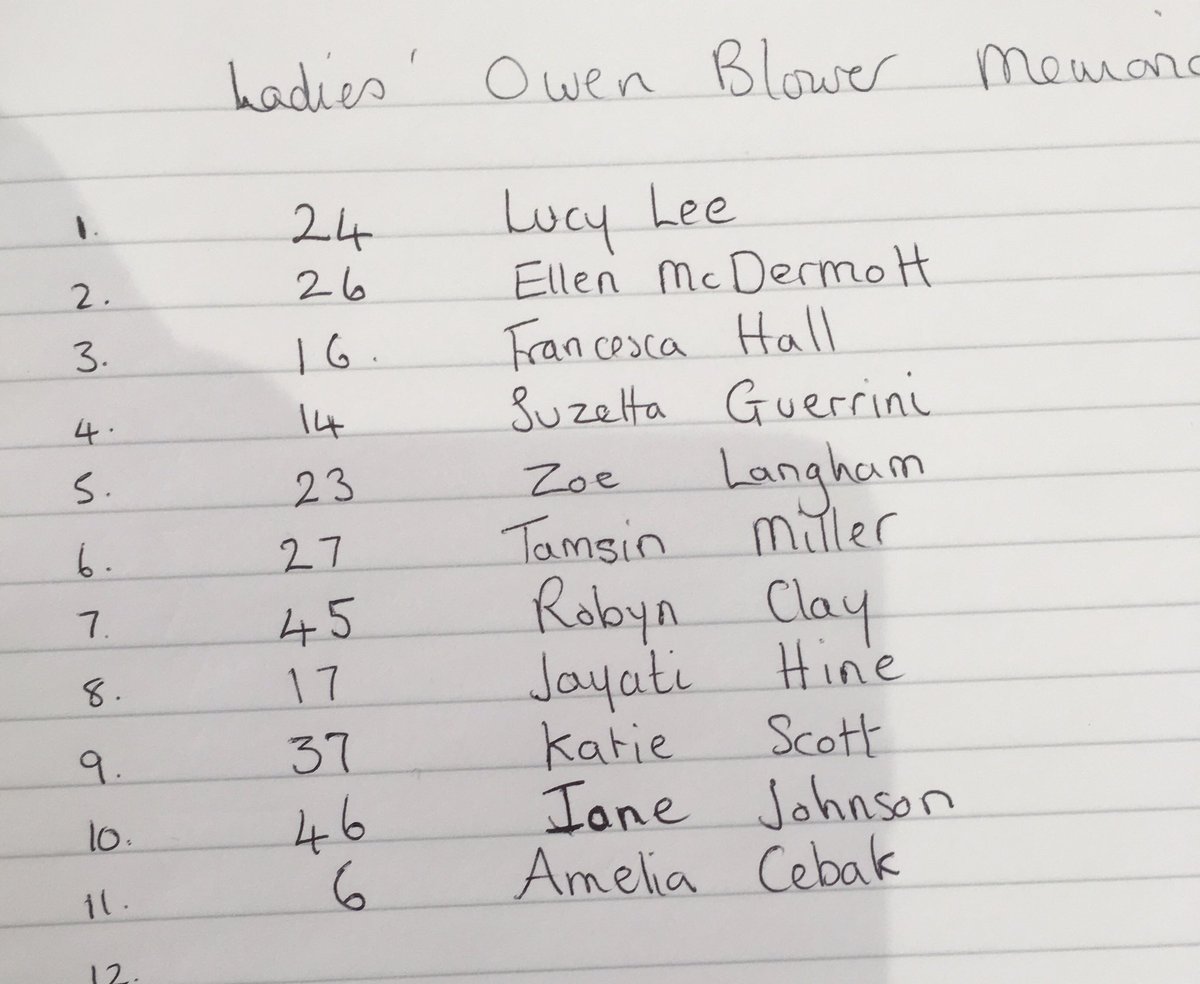 Ladies' Owen Blower Memoria
1. 24 Lucy Lee
2. 26 Ellen McDermott
3. 16. Francesca Hall
4. 14 Suzetta Guerrini
5. 23 Zoe Langham
6. 27 Tamsin Miller
7. 45 Robyn Clay
8. 17 Jayati Hine
9. 37 Katie Scott
10. 46 Iona Johnson
11. 6 Amelia Cebak
12.